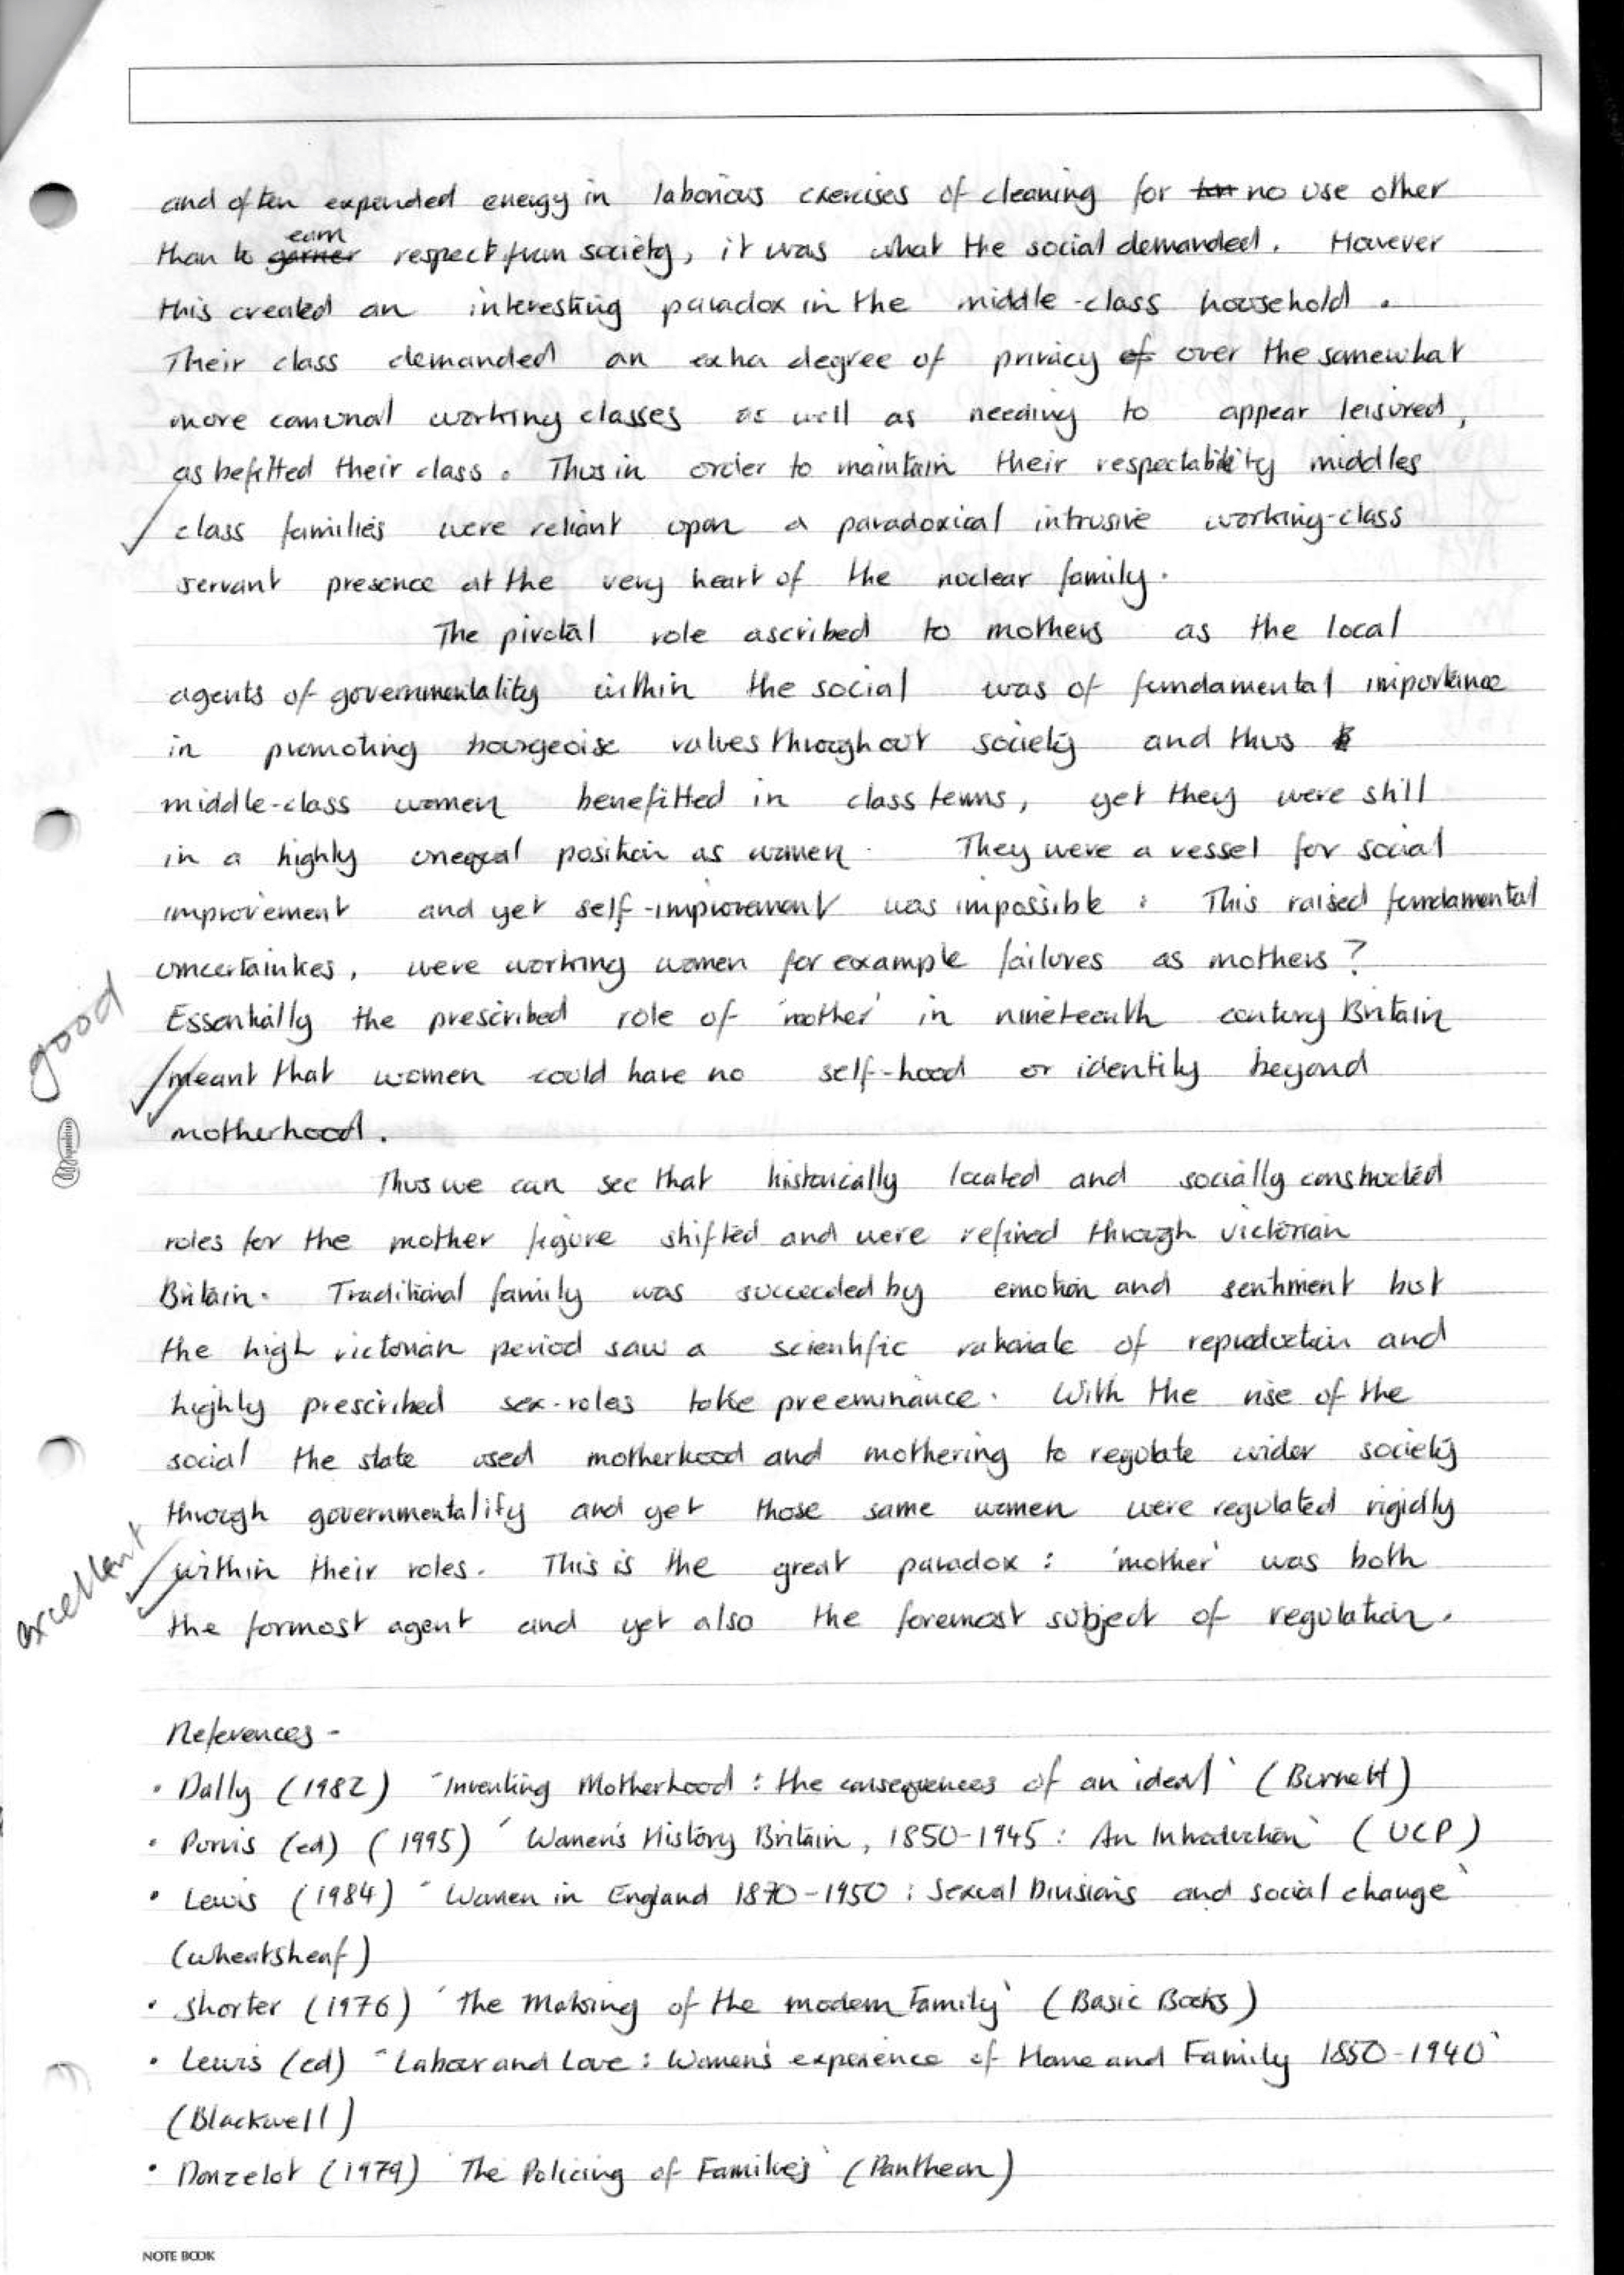 and often expended energy in laborious exercises of cleaning for no use other
than to earn respect from society, it was what the social demanded. However
this created an interesting paradox in the middle-class household.
Their class demanded an extra degree of privacy of over the somewhat
more comunal working classes as well as needing to appear leisured,
as befitted their class. Thus in order to maintain their respectability middles
class families were reliant upon a paradoxical intrusive working-class
servant presence at the very heart of the nuclear family.
The pivotal role ascribed to mothers as the local
agents of governmentality within the social was of fundamental importance
in promoting bourgeoise values throughout society and thus
middle-class women benefitted in class terms, yet they were still
in a highly unequal position as women. They were a vessel for social
improvement and yet self-improvement was impossible : This raised fundamental
uncertainties, were working women for example failures as mothers?
good
Essentially the prescribed role of 'mother' in nineteenth century Britain
meant that women could have no self-hood or identity beyond
motherhood.
Thus we can see that historically located and socially constructed
roles for the mother figure shifted and were refined through victorian
Britain. Traditional family was succeeded by emotion and sentiment but
the high victorian period saw a scientific rationale of reproduction and
highly prescribed sex-roles take preeminance. With the rise of the
social the state used motherhood and mothering to regulate wider society
through governmentality and yet those same women were regulated rigidly
excellent
within their roles. This is the great paradox : 'mother' was both
the formost agent and yet also the foremost subject of regulation.
References -
• Dally (1982) 'Inventing Motherhood : the consequences of an ideal' (Burnett)
• Purvis (ed) (1995) 'Women's History Britain, 1850-1945 : An Introduction' (UCP)
• Lewis (1984) 'Women in England 1870-1950 : Sexual Divisions and social change'
(Wheatsheaf)
• Shorter (1976) 'The Making of the modern Family' (Basic Books)
• Lewis (ed) 'Labour and Love : Women's experience of Home and Family 1850-1940'
(Blackwell)
• Donzelot (1979) 'The Policing of Families' (Pantheon)
NOTE BOOK